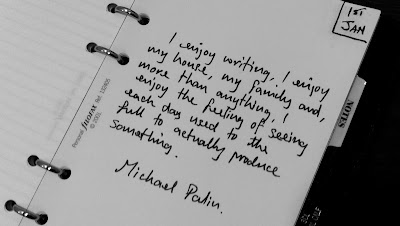 1ST
JAN
I enjoy writing, I enjoy
my house, my family and,
more than anything, I
enjoy the feeling of seeing
each day used to the
full to actually produce
something.
Michael Palin.
NOTES
Personal filofax Ref. 132905
© 2005